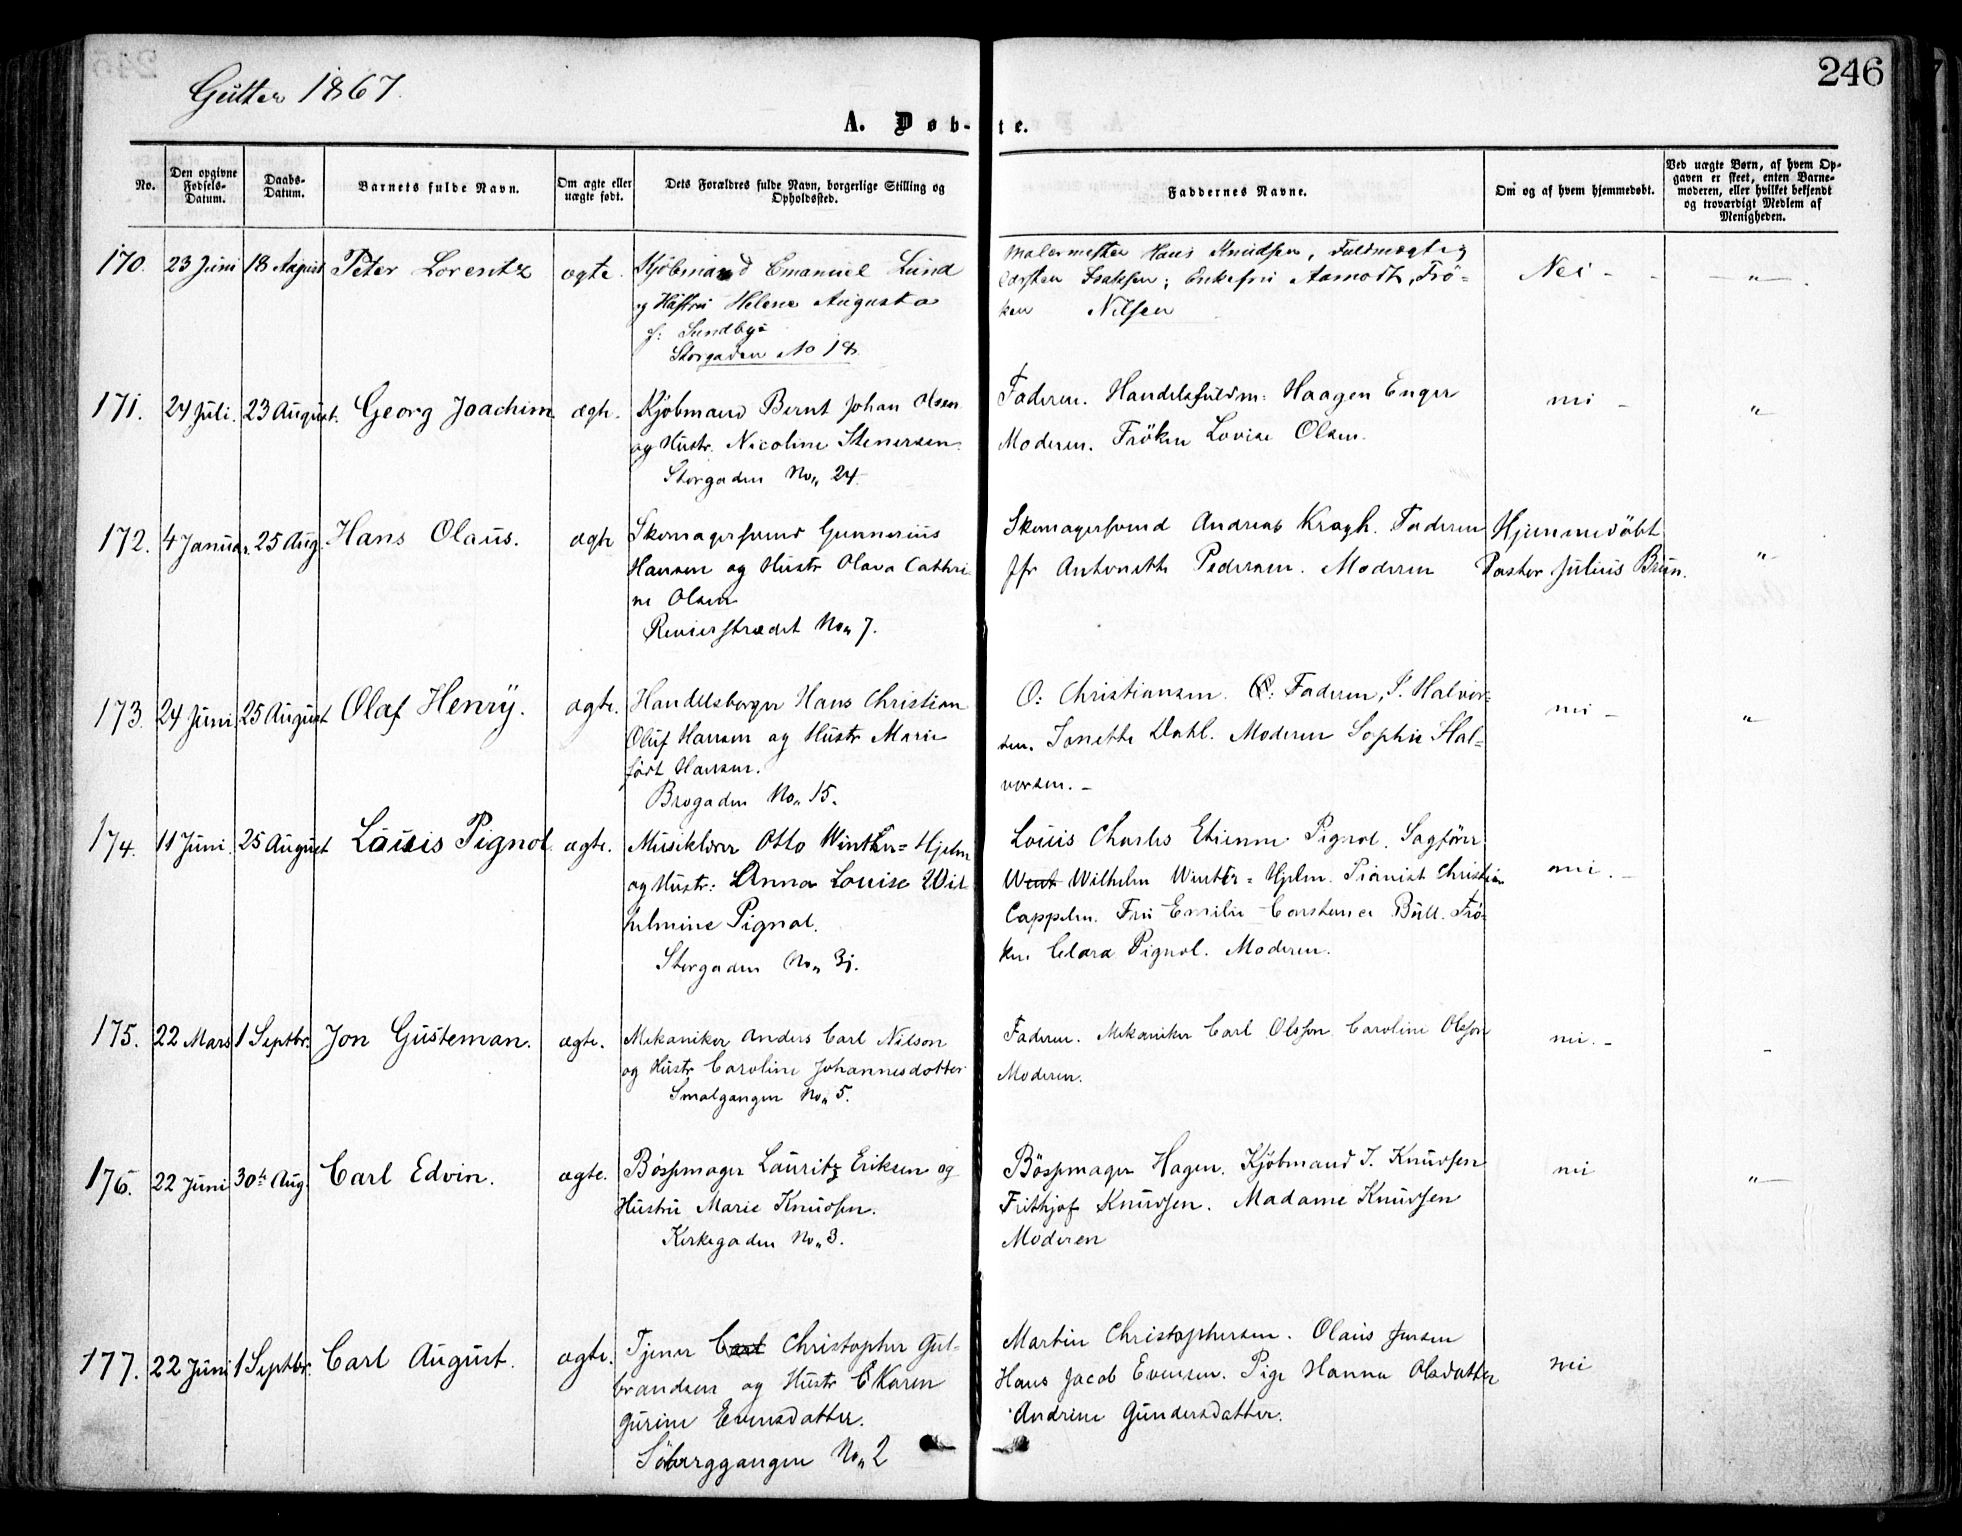 Gutter 1867.
246
A. Døb-te.
No.
Den opgivne Fødsels-Datum.
Daabs-Datum.
Barnets fulde Navn.
Om ægte eller uægte født.
Dets Forældres fulde Navn, borgerlige Stilling og Opholdssted.
Faddernes Navne.
Om og af hvem hjemmedøbt.
Ved uægte Børn, af hvem Opgaven er skeet, enten Barnemoderen, eller hvilket bekjendt og troværdigt Medlem af Menigheden.
170. 23 Juni 18 August Peter Lorentz ægte. Kjöbmand Emanuel Lund
og Hustru Helene Augusta
f: Sundbye
Storgaden No 18
Malermester Hans Knudsen, Fuldmægtig
Carsten Isaksen; Enkefru Aamodt, Frö-
ken Nilsen
Nei - - „
171. 24 Juli. 23 August. Georg Joachim ægte. Kjöbmand Bernt Johan Olsen
og Hustr. Nicoline Stenersen.
Storgaden No„ 24.
Faderen. Handelsfuldm: Haagen Enger
Moderen. Fröken Lovise Olsen.
nei - „
172. 4 Januar. 25 Aug. Hans Olaus. ægte Skomagersvend Gunnerius
Hansen og Hustr Olava Cathri-
ne Olsen
Revierstrædet No„ 7.
Skomagersvend Andreas Kragh. Faderen
Jfr Antonette Pedersen. Moderen
Hjemmedöbt
Pastor Julius Brun.
„
173. 24 Juni 25 August Olaf Henry. ægte. Handelsborger Hans Christian
Oluf Hansen og Hustr Marie
född Hansen.
Brogaden No„ 15.
O: Christiansen. Faderen, P. Halvor-
sen. Janette Dahl. Moderen Sophie Hal-
vorsen. -
nei - „
174. 11 Juni. 25 August Louis Pignol ægte. Musiklærer Otto Winther-Hjelm
og Hustr: Anna Louise Wil
helmine Pignol.
Storgaden No„ 31.
Louis Charles Etienne Pignol. Sagförer
Wilhelm Winter-Hjelm. Pianist Christian
Cappelen. Fru Emilie Constance Bull. Frö-
ken Clara Pignol. Moderen.
nei.
175. 22 Mars 1 Septbr. Jon Gusteman. ægte. Mekaniker Anders Carl Nilson
og Hustr Caroline Johannesdotter
Smalgangen No„ 5.
Faderen. Mekaniker Carl Olsson. Caroline Olsson
Moderen.
nei. - -
176. 22 Juni 30te Aug. Carl Edvin. ægte. Bössemager Lauritz Eriksen og
Hustru Marie Knudsen.
Kirkegaden No„ 3.
Bössemager Hagen. Kjöbmand J. Knudsen
Frithjof Knudsen. Madame Knudsen
Moderen
nei „
177. 22 Juni 1 Septbr. Carl August. ægte. Tjener Carl Christopher Gul-
brandsen og Hustr Karen
Gurine Evensdatter.
Söberggangen No„ 2
Martin Christophersen. Olaus Jensen
Hans Jacob Evensen. Pige Hanna Olsdatter
Andrine Gundersdatter.
nei